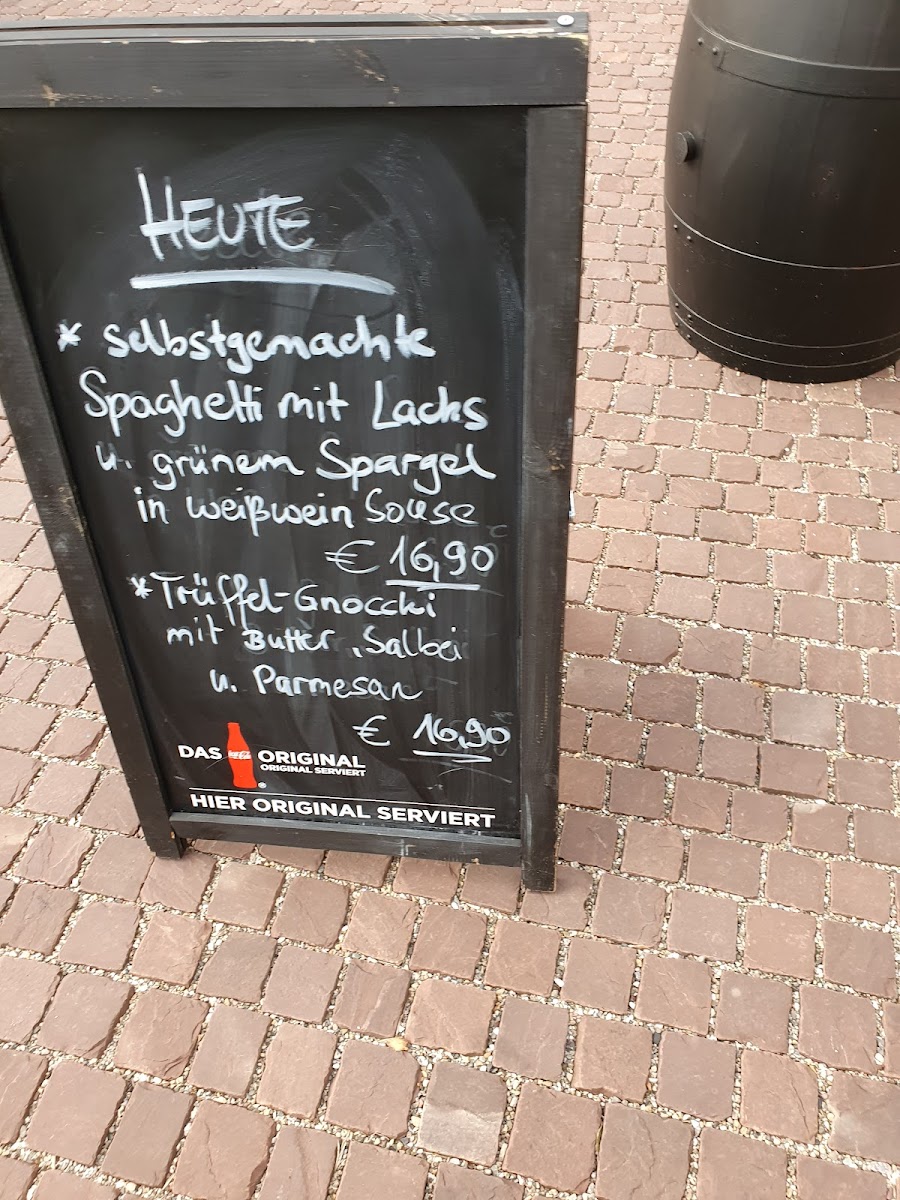 HEUTE
* selbstgemachte
Spaghetti mit Lachs
u. grünem Spargel
in weißwein Souse
€ 16,90
* Trüffel-Gnocchi
mit Butter, Salbei
u. Parmesan
€ 16,90
DAS Coca-Cola ORIGINAL
ORIGINAL SERVIERT
HIER ORIGINAL SERVIERT